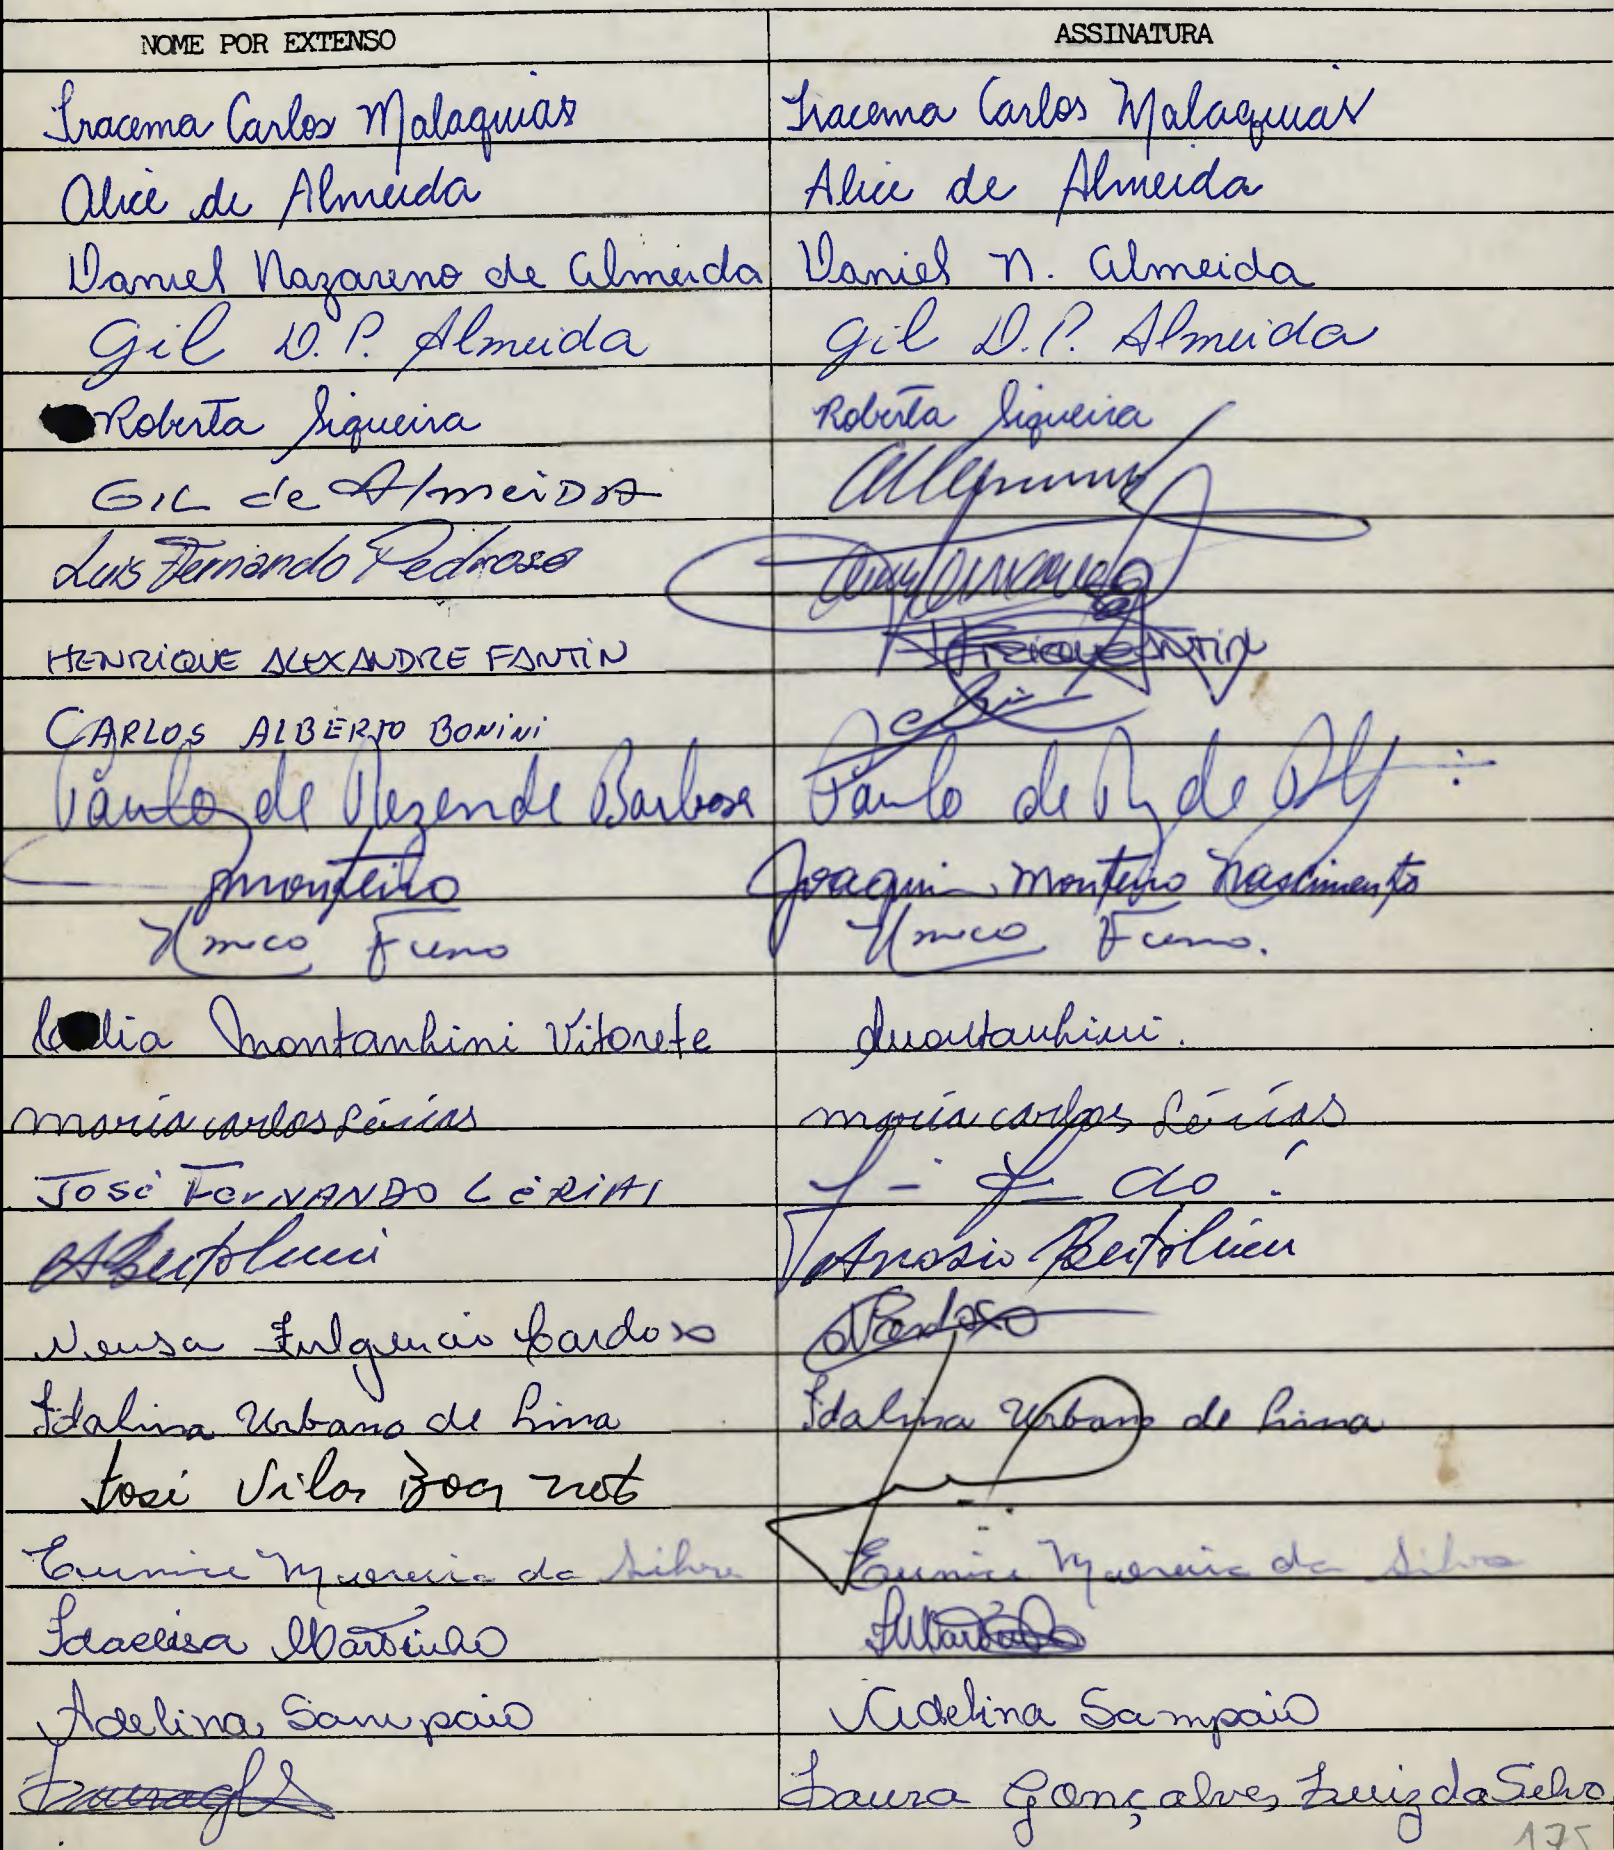 NOME POR EXTENSO ASSINATURA
Iracema Carlos Malaquias Iracema Carlos Malaquias
Alice de Almeida Alice de Almeida
Daniel Nazareno de Almeida Daniel N. Almeida
Gil D. P. Almeida Gil D. P. Almeida
Roberta Siqueira Roberta Siqueira
GIL de Almeida
Luis Fernando Pedroso
HENRIQUE ALEXANDRE FANTIN
CARLOS ALBERTO BONINI
Paulo de Rezende Barbosa Paulo de R de
Jmonteiro Joaquim Monteiro Nascimento
montanhini Vitorete montanhini.
maria carlos Lérias maria carlos Lérias
José FERNANDO LÉRIAS
ABertolucci Bertolucci
Neusa Fulgencio Cardoso NCardoso
Idalina Urbano de Lima Idalina Urbano de Lima
José Vilas Boas
Eunice Moreira da Silva Eunice Moreira da Silva
Idaelisa Martinho
Adelina Sampaio Adelina Sampaio
Laura Gonçalves Luiz da Silva
175